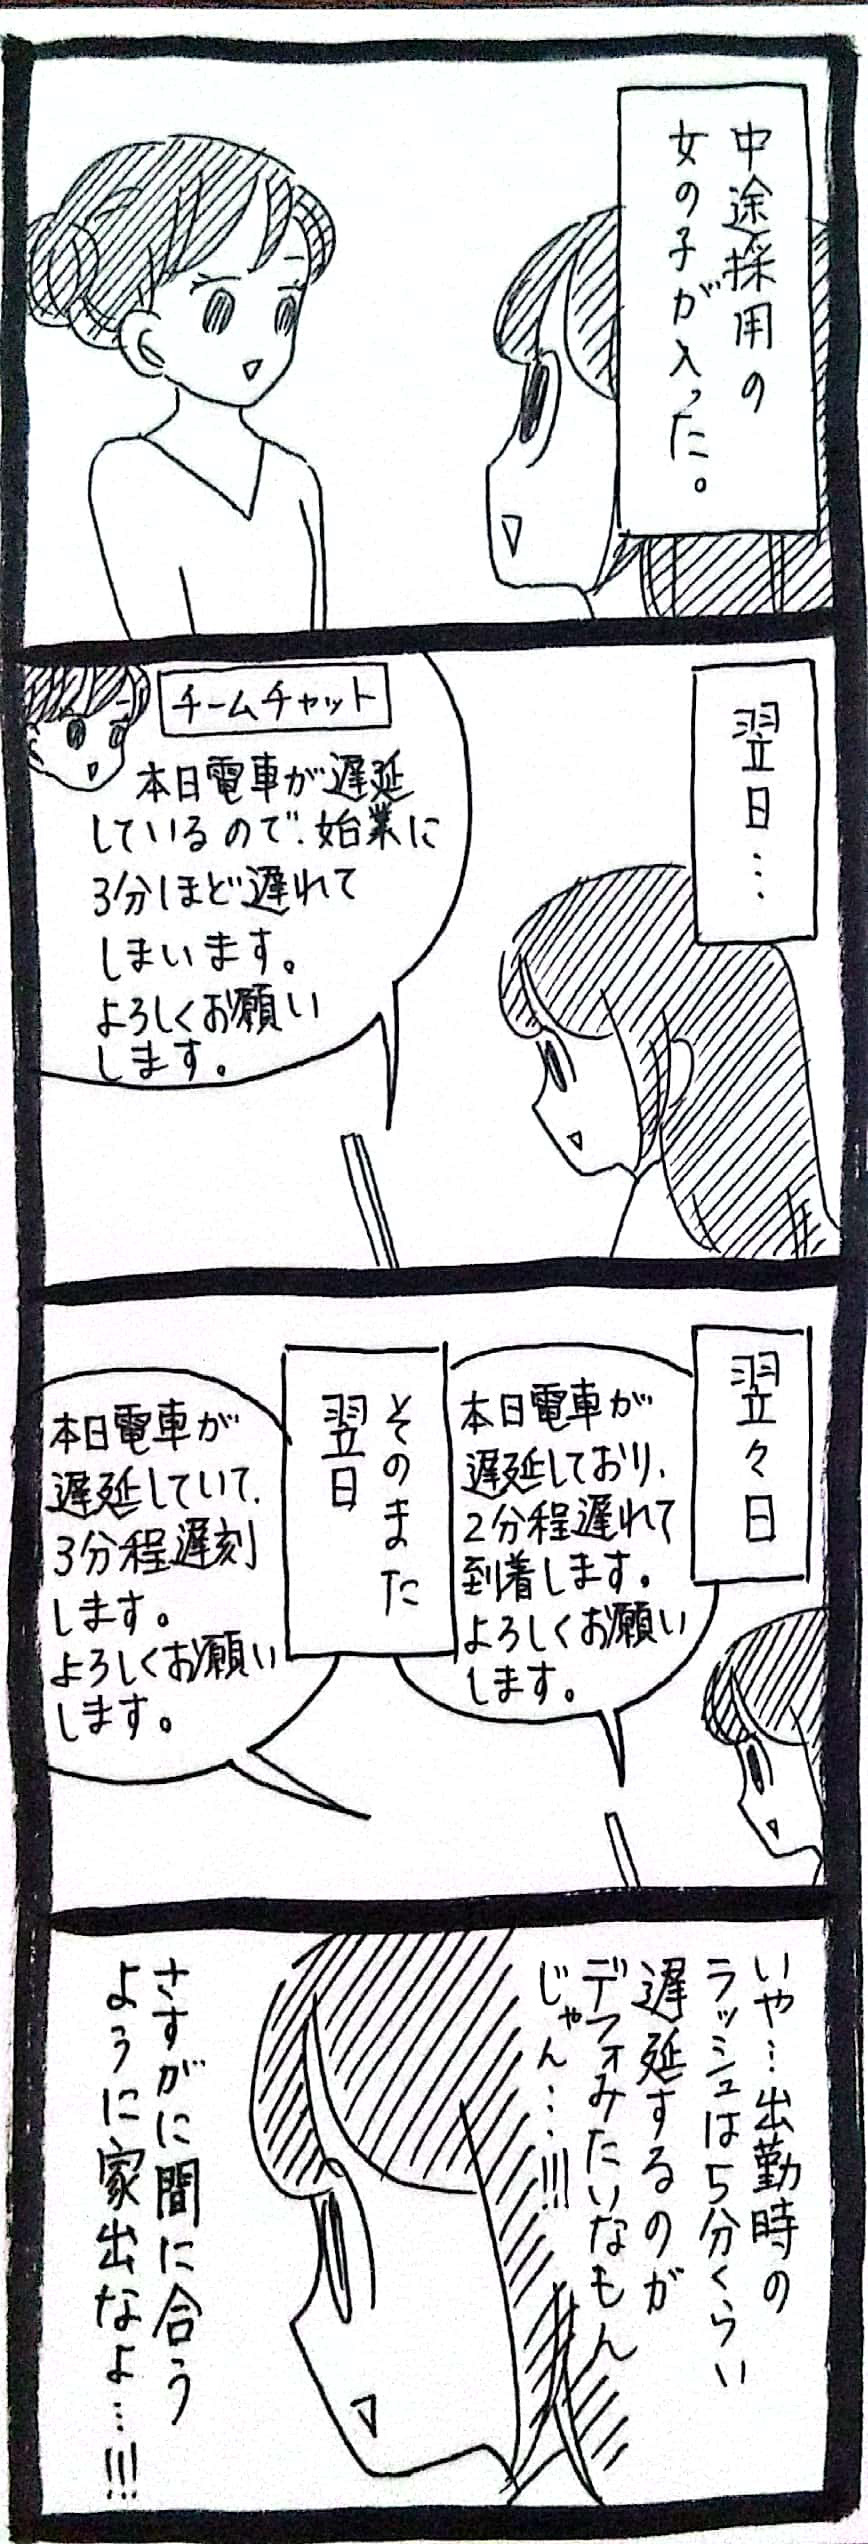 中途採用の
女の子が入った。
翌日…
チームチャット
本日電車が遅延
しているので、始業に
3分ほど遅れて
しまいます。
よろしくお願い
します。
翌々日
本日電車が
遅延しており、
2分程遅れて
到着します。
よろしくお願い
します。
そのまた
翌日
本日電車が
遅延していて、
3分程遅刻
します。
よろしくお願い
します。
いや…出勤時の
ラッシュは5分くらい
遅延するのが
デフォみたいなもん
じゃん…!!!
さすがに間に合う
ように家出なよ…!!!